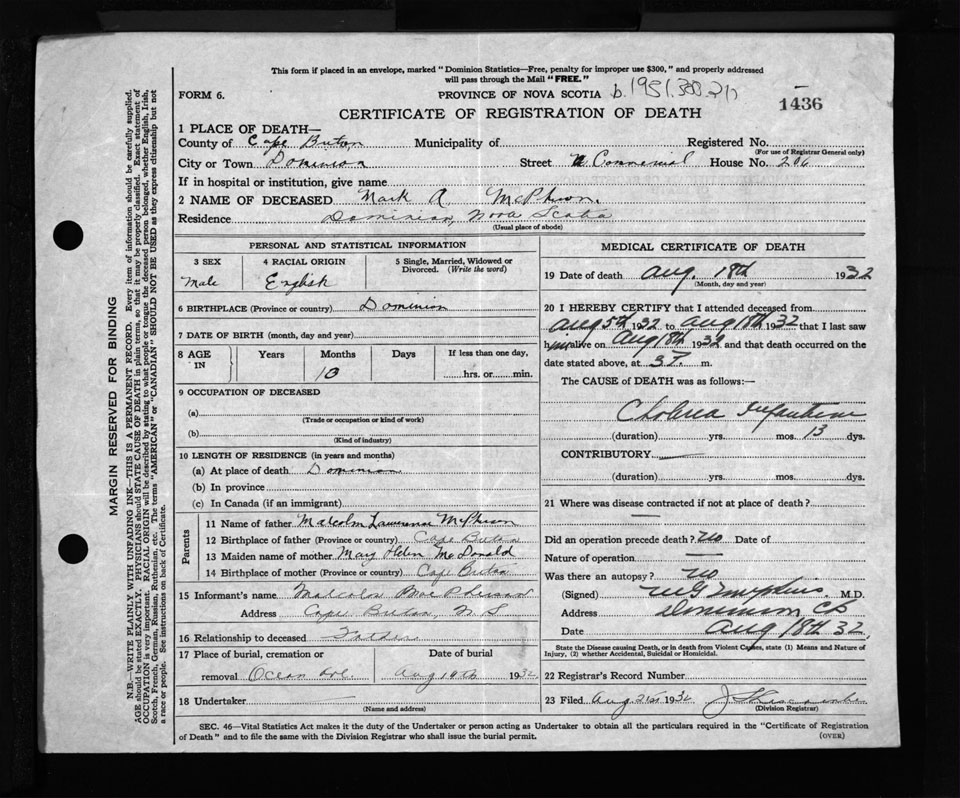 This form if placed in an envelope, marked "Dominion Statistics—Free, penalty for improper use $300," and properly addressed
will pass through the Mail "FREE."
FORM 6. PROVINCE OF NOVA SCOTIA b.1931.300.
1436
CERTIFICATE OF REGISTRATION OF DEATH
MARGIN RESERVED FOR BINDING
N.B.—WRITE PLAINLY WITH UNFADING INK—THIS IS A PERMANENT RECORD. Every item of information should be carefully supplied.
AGE should be stated EXACTLY. PHYSICIANS should STATE CAUSE OF DEATH in plain terms, so that it may be properly classified. Exact statement of
OCCUPATION is very important. RACIAL ORIGIN will be described by stating to what people or tongue the deceased person belonged, whether English, Irish,
Scotch, French, German, Russian, Ruthenian, etc. The terms "AMERICAN" or "CANADIAN" SHOULD NOT BE USED as they express citizenship but not
a race or people. See instructions on back of Certificate.
1 PLACE OF DEATH—
County of Cape Breton Municipality of Registered No.
(For use of Registrar General only)
City or Town Dominion Street Commercial House No. 206
If in hospital or institution, give name
2 NAME OF DECEASED Mark A. McPherson
Residence Dominion, Nova Scotia
(Usual place of abode)
PERSONAL AND STATISTICAL INFORMATION
3 SEX 4 RACIAL ORIGIN 5 Single, Married, Widowed or
Divorced. (Write the word)
Male English
6 BIRTHPLACE (Province or country) Dominion
7 DATE OF BIRTH (month, day and year)
8 AGE IN Years Months Days If less than one day,
10 hrs. or min.
9 OCCUPATION OF DECEASED
(a)
(Trade or occupation or kind of work)
(b)
(Kind of industry)
10 LENGTH OF RESIDENCE (in years and months)
(a) At place of death Dominion
(b) In province
(c) In Canada (if an immigrant)
Parents
11 Name of father Malcolm Lawrence McPherson
12 Birthplace of father (Province or country) Cape Breton
13 Maiden name of mother Mary Helen McDonald
14 Birthplace of mother (Province or country) Cape Breton
15 Informant's name Malcolm MacPherson
Address Cape Breton, N S
16 Relationship to deceased Father
17 Place of burial, cremation or Date of burial
removal Ocean Ave. Aug 19th 1932
18 Undertaker
(Name and address)
MEDICAL CERTIFICATE OF DEATH
19 Date of death Aug. 18th 1932
(Month, day and year)
20 I HEREBY CERTIFY that I attended deceased from
Aug 5th 1932 to Aug 18th 1932 that I last saw
him alive on Aug 18th 1932 and that death occurred on the
date stated above, at 3 m.
The CAUSE of DEATH was as follows:—
Cholera Infantum
(duration) yrs. mos. 13 dys.
CONTRIBUTORY
(duration) yrs. mos. dys.
21 Where was disease contracted if not at place of death?
Did an operation precede death? No Date of
Nature of operation
Was there an autopsy? no
(Signed) M.D.
Address Dominion CB
Date Aug 18th 32
State the Disease causing Death, or in death from Violent Causes, state (1) Means and Nature of
Injury, (2) whether Accidental, Suicidal or Homicidal.
22 Registrar's Record Number
23 Filed Aug 21st 1932
(Division Registrar)
SEC. 46—Vital Statistics Act makes it the duty of the Undertaker or person acting as Undertaker to obtain all the particulars required in the "Certificate of Registration
of Death" and to file the same with the Division Registrar who shall issue the burial permit. (OVER)